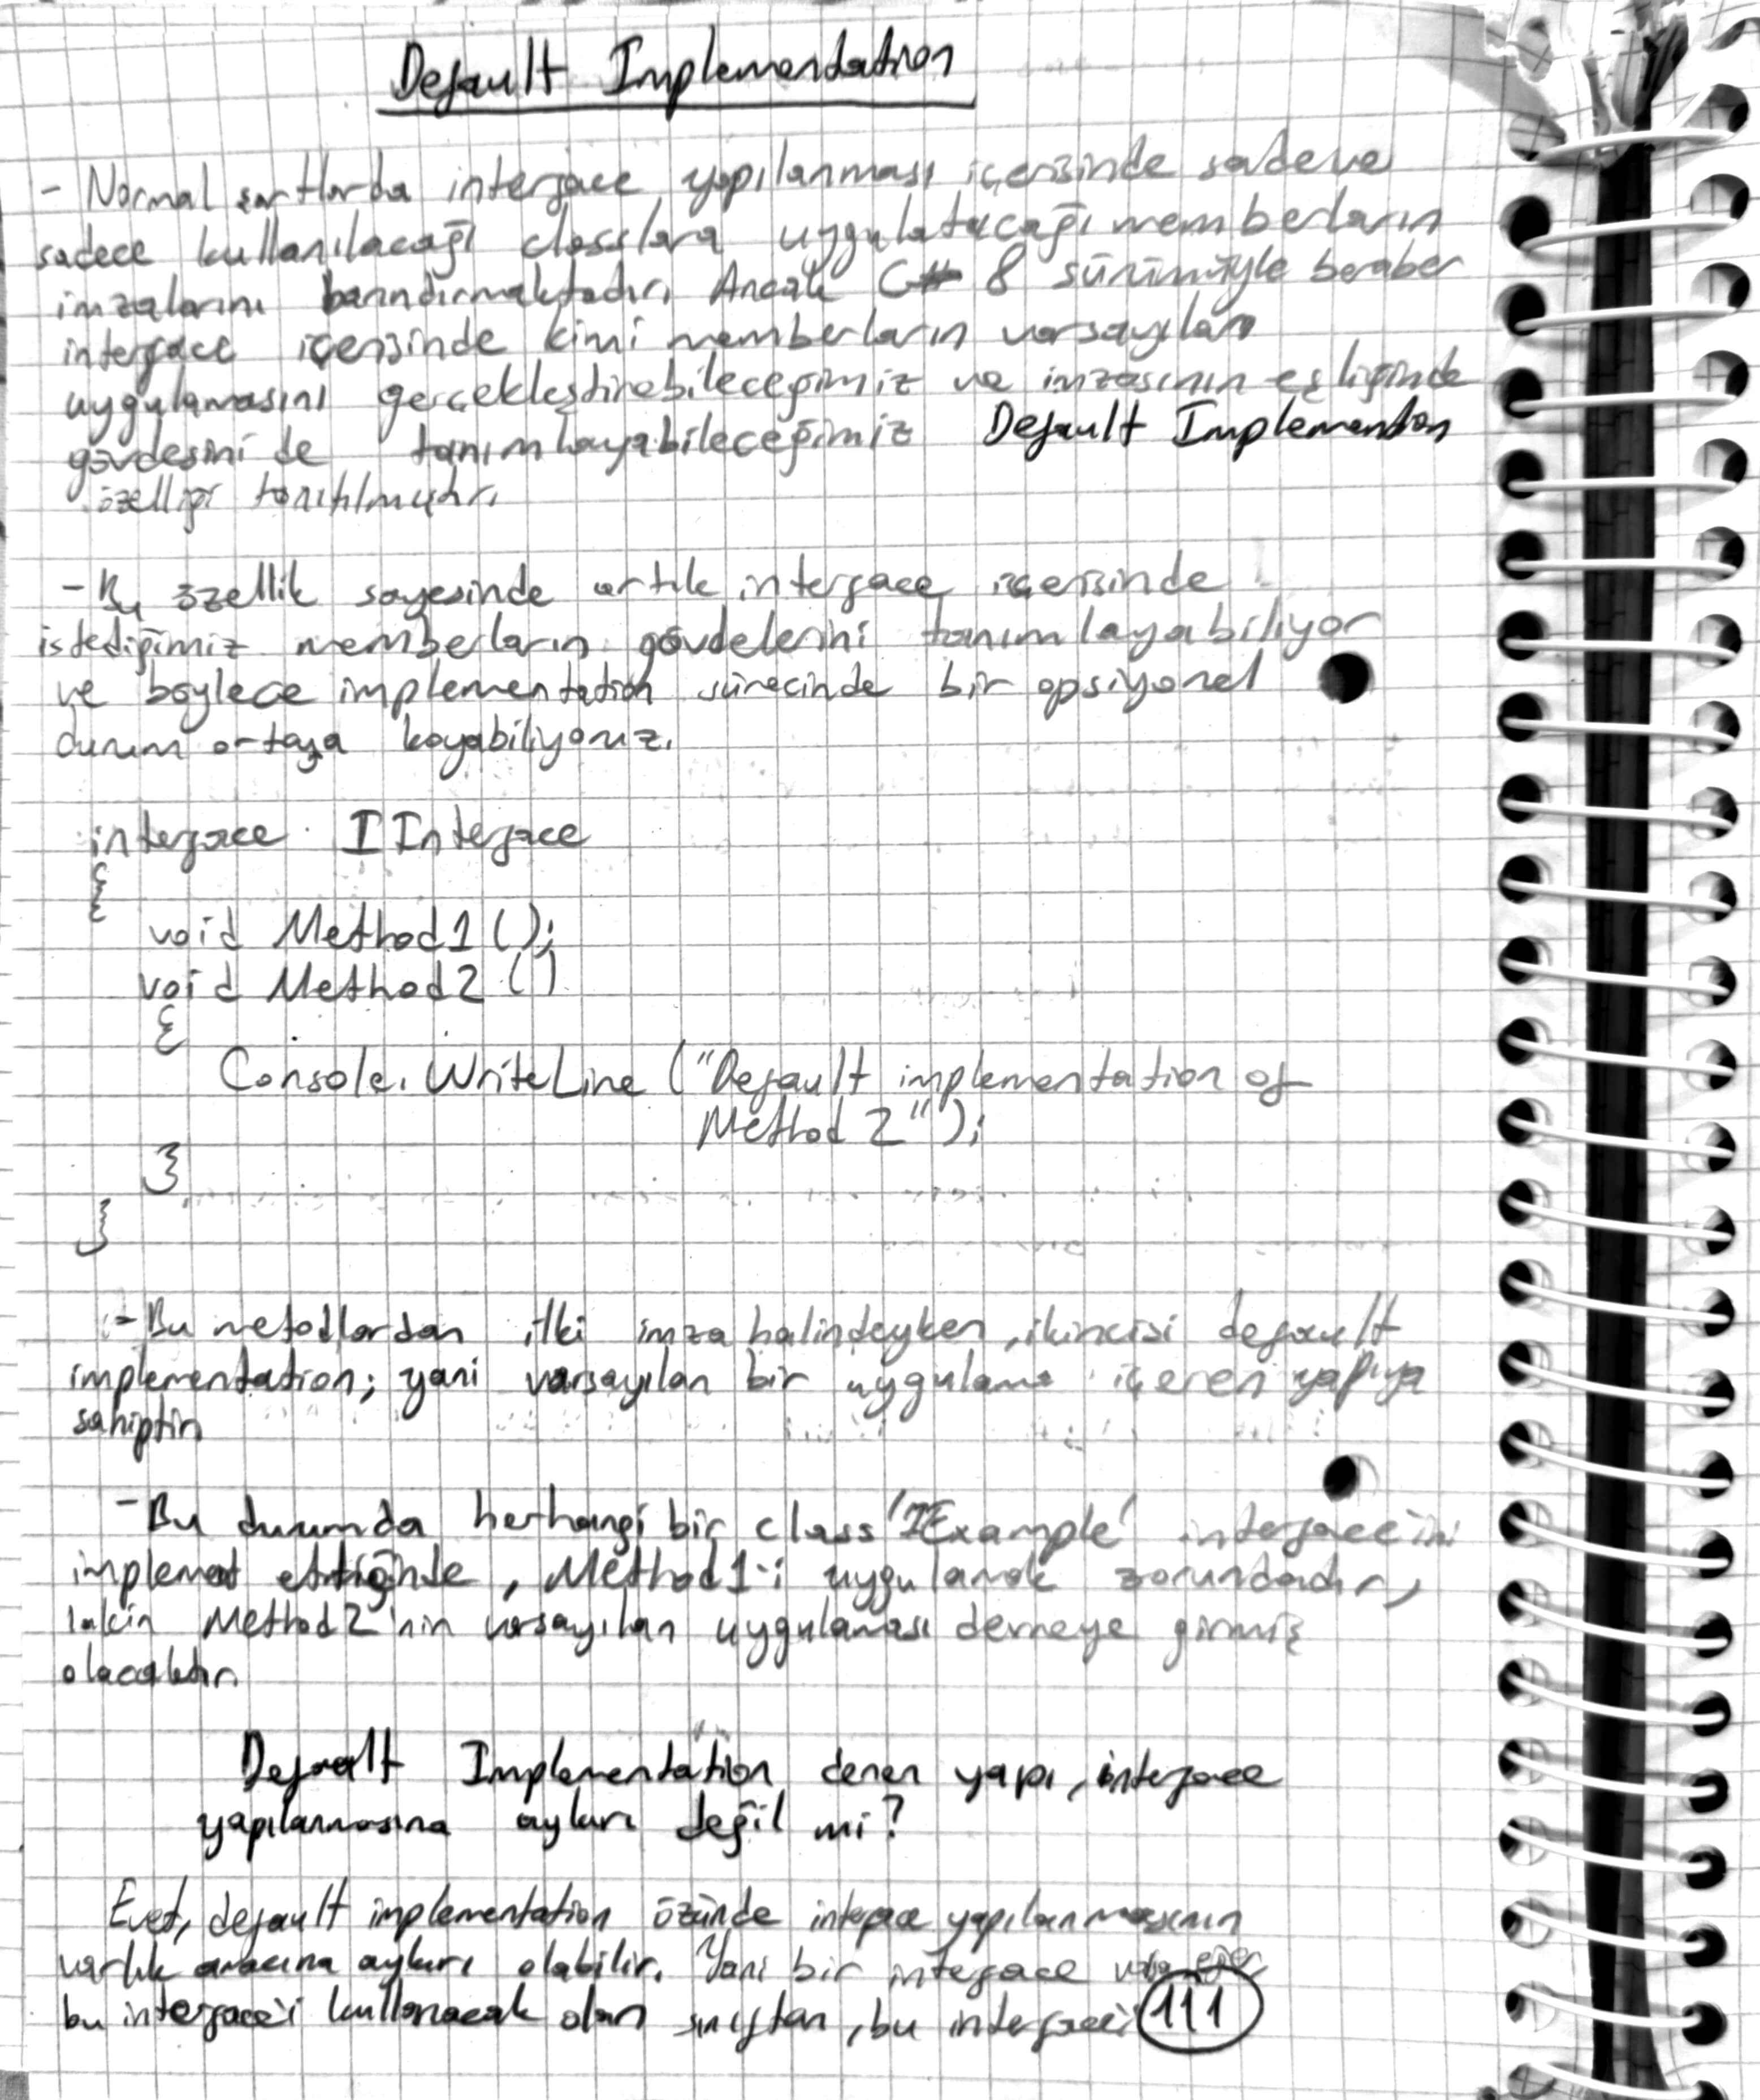 Default Implementation
- Normal şartlarda interface yapılanması içerisinde sadece
sadece kullanılacağı classlara uygulatacağı memberların
imzalarını barındırmaktadır. Ancak C# 8 sürümüyle beraber
interface içerisinde kimi memberların varsayılan
uygulamasını gerçekleştirebileceğimiz ve imzasının eşliğinde
gövdesini de tanımlayabileceğimiz Default Implementon
özelliği tanıtılmıştır.
- Bu özellik sayesinde artık interface içerisinde
istediğimiz memberların gövdelerini tanımlayabiliyor
ve böylece implementation sürecinde bir opsiyonel
durum ortaya koyabiliyoruz.
interface IInterface
{
void Method1 ();
void Method2 ()
{
Console.WriteLine ("Default implementation of
Method 2");
}
}
- Bu metodlardan ilki imza halindeyken, ikincisi default
implementation; yani varsayılan bir uygulama içeren yapıya
sahiptir
- Bu durumda herhangi bir class 'IExample' interface'ini
implement ettiğinde, Method1'i uygulamak zorundadır,
lakin Method2'nin varsayılan uygulaması devreye girmiş
olacaktır
Default Implementation denen yapı, interface
yapılanmasına aykırı değil mi?
Evet, default implementation özünde interface yapılanmasının
varlık amacına aykırı olabilir. Yani bir interface varsa eğer
bu interface'i kullanacak olan sınıftan, bu interface'i
111